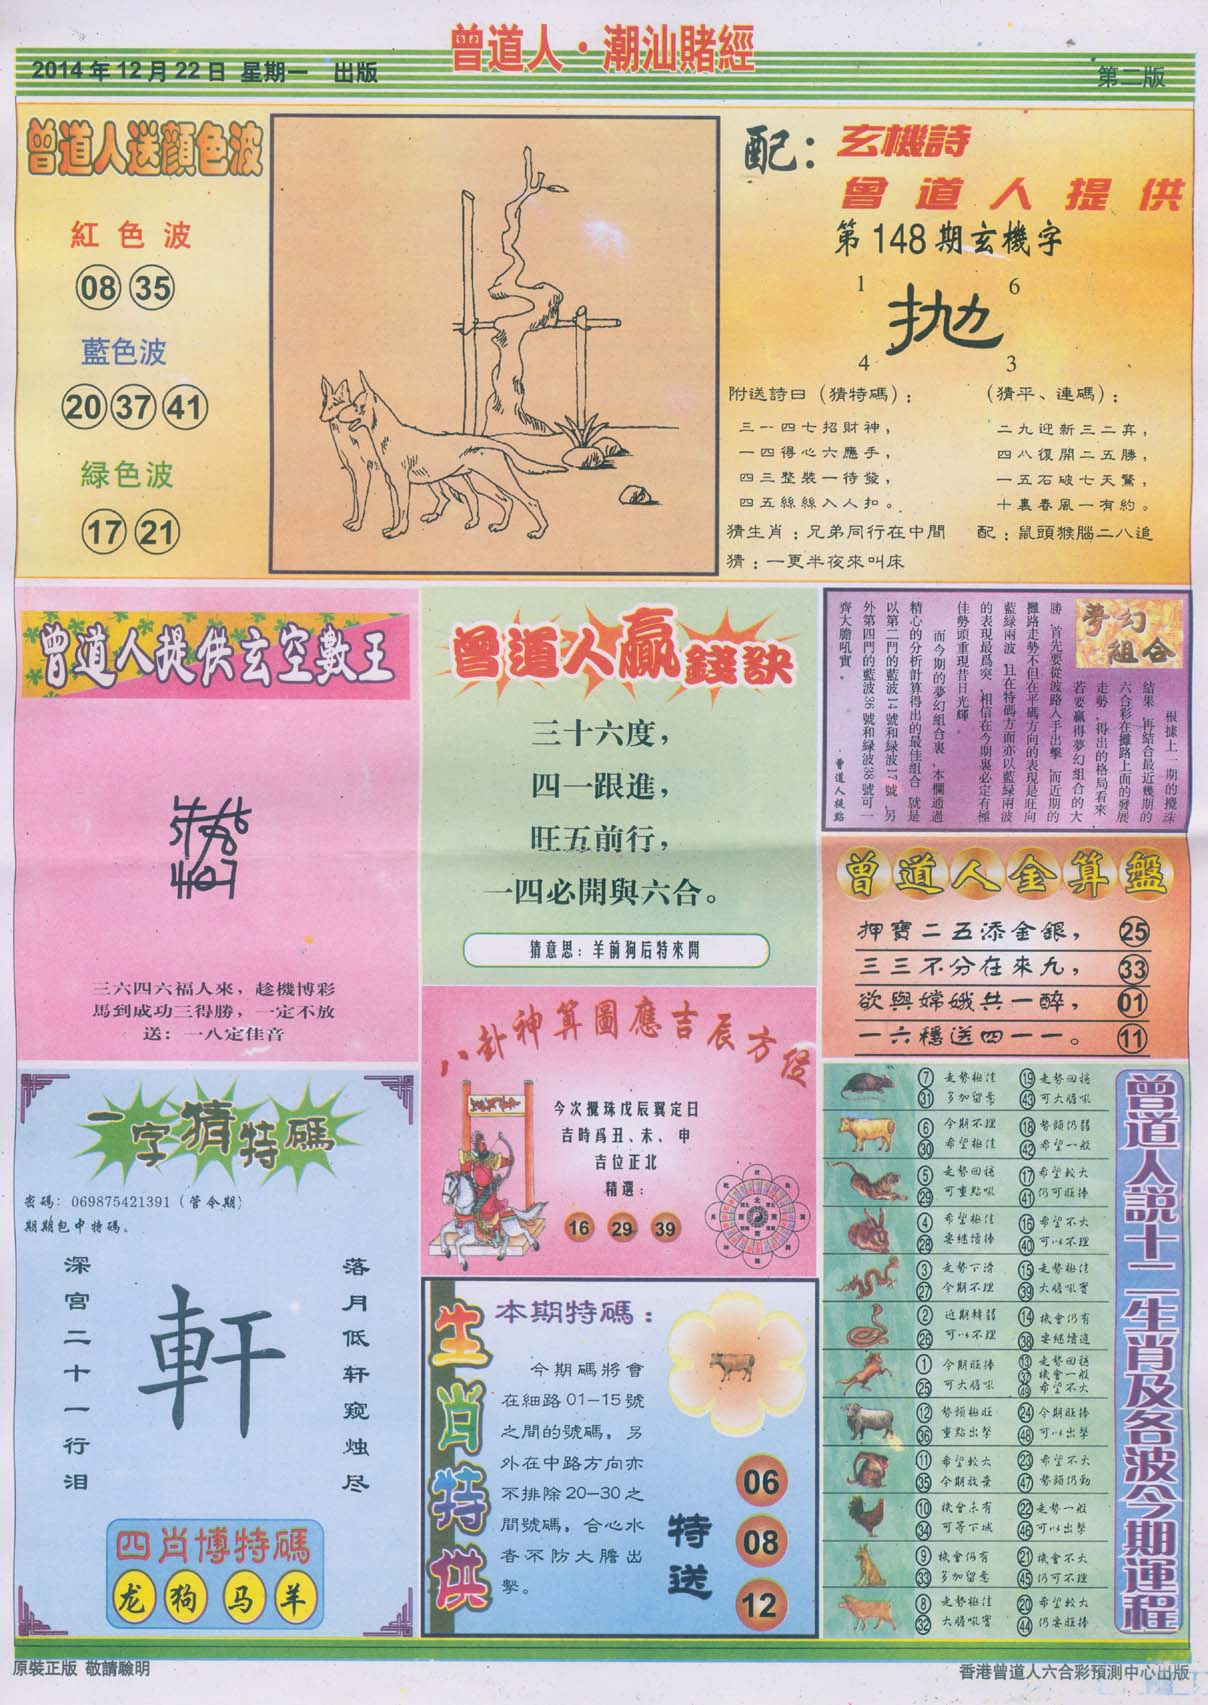 曾道人·潮汕賭經
2014年12月22日 星期一 出版
第二版
曾道人送顔色波
紅色波
08 35
藍色波
20 37 41
緑色波
17 21
配：玄機詩
曾道人提供
第148期玄機字
1 6
拋
4 3
附送詩曰（猜特碼）：
三一四七招財神，
一四得心六應手，
四三整裝一待發，
四五絲絲入人扣。
（猜平、連碼）：
二九迎新三二弃，
四八復開二五勝，
一五石破七天驚，
十裏春風一有約。
猜生肖：兄弟同行在中間
配：鼠頭猴腦二八追
猜：一更半夜來叫床
曾道人提供玄空數王
三六四六福人來，趁機博彩
馬到成功三得勝，一定不放
送：一八定佳音
曾道人贏錢訣
三十六度，
四一跟進，
旺五前行，
一四必開與六合。
猜意思：羊前狗后特來開
夢幻
組合
根據上一期的攪珠
結果，再結合最近幾期的
六合彩在攤路上面的發展
走勢，得出的格局看來，
若要贏得夢幻組合的大
勝，首先要從波路入手出擊，而近期的
攤路走勢不但在平碼方向的表現是旺向
藍緑兩波，且在特碼方面亦以藍緑兩波
的表現最爲突，相信在今期裏必定有極
佳勢頭重現昔日光輝。
而今期的夢幻組合裏，本欄通過
精心的分析計算得出的最佳組合，就是
以第二門的藍波14號和緑波17號，另
外第四門的藍波36號和緑波38號可一
齊大膽吼實。
·曾道人提點
曾道人金算盤
押寶二五添金銀， 25
三三不分在來九， 33
欲與嫦娥共一醉， 01
一六穩送四一一。 11
一字猜特碼
密碼：069875421391（管令期）
期期包中特碼。
深宫二十一行泪
軒
落月低轩窥烛尽
四肖博特碼
龙 狗 马 羊
八卦神算圖應吉辰方從
今次攪珠戊辰翼定日
吉時爲丑、未、申
吉位正北
精選：
16 29 39
生肖特供
本期特碼：
今期碼將會
在細路01—15號
之間的號碼，另
外在中路方向亦
不排除20—30之
間號碼，合心水
者不防大膽出
擊。
特送
06
08
12
曾道人説十二生肖及各波今期運程
7 走勢極佳 19 走勢回穩
31 多加留意 43 可大膽吼
6 今期不理 18 勢頭仍弱
30 希望極佳 42 希望一般
5 走勢回穩 17 希望較大
29 可重點吼 41 仍可旺捧
4 希望極佳 16 希望不大
28 要繼續捧 40 可以不理
3 走勢下滑 15 走勢極佳
27 今期不理 39 大膽吼實
2 近期轉弱 14 機會仍有
26 可以不理 38 要繼續進
1 今期旺捧 13 走勢回穩
37 機會一般
25 可大膽吼 49 希望不大
12 勢頭極旺 24 今期旺捧
36 重點出擊 48 可以出擊
11 希望較大 23 希望不大
35 今期放棄 47 勢頭仍勁
10 機會未有 22 走勢一般
34 可等下城 46 可以出擊
9 機會仍有 21 機會不大
33 多加留意 45 仍可不理
8 走勢極佳 20 希望較大
32 大膽吼實 44 仍要旺捧
原裝正版 敬請驗明
香港曾道人六合彩預測中心出版